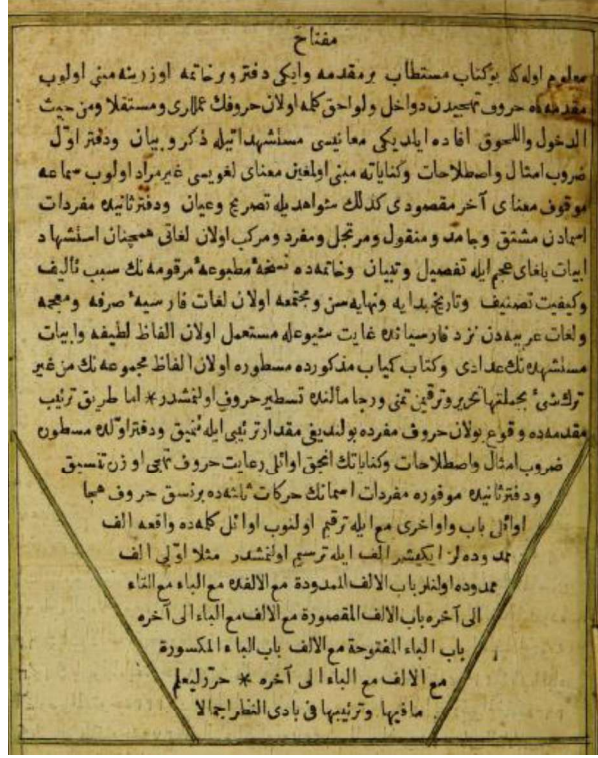 مفتاح
معلوم اوله كه بو كتاب مستطاب بر مقدمه وايكى دفتر وبر خاتمه اوزرينه مبنى اولوب
مقدمه ده حروف تهجيدن دواخل ولواحق كلمه اولان حروفك عللرى ومستقلا ومن حيث
الدخول واللحوق افاده ايلديكى معانيسى مستشهداتيله ذكر و بيان ودفتر اوّل
ضروب امثال واصطلاحات وكناياته مبنى اولمغين معناى لغويسى غير مراد اولوب سماعه
موقوف معناى آخر مقصودى كذلك شواهديله تصريح وعيان ودفتر ثانيده مفردات
اسمادن مشتق وجامد و منقول ومرتجل ومفرد ومركب اولان لغاتى همچنان استشهاد
ابيات بلغاى عجم ايله تفصيل وتبيان وخاتمه ده نسخهٔ مطبوعهٔ مرقومه نك سبب تأليف
وكيفيت تصنيف وتاريخ بدايه ونهايه سن ومجتمعه اولان لغات فارسيهٔ صرفه ومعجمه
ولغات عربيه دن نزد فارسيانده غايت شيوعله مستعمل اولان الفاظ لطيفه وابيات
مستشهده نك عدادى وكتاب كمياب مذكورده مسطوره اولان الفاظ مجموعه نك من غير
ترك شئ بجملتها تحرير وترقيمن تمنى ورجا مآلنده تسطير حروف اولنمشدر * اما طريق ترتيب
مقدمه ده وقوع بولان حروف مفرده بولنديغى مقدار ترتيبى ايله تنميق ودفتر اوّلده مسطوره
ضروب امثال واصطلاحات وكناياتك انجق اوائلى رعايت حروف تهجى اوزرن تنسيق
ودفتر ثانيده موفوره مفردات اسمانك حركات ثلثه ده برنسق حروف هجا
اوائلى باب واواخرى مع ايله ترقيم اولنوب اوائل كلمه ده واقعه الف
ممدوده لر ايكيشر الف ايله ترسيم اولنمشدر مثلا اوّلى الف
ممدوده اولنلر باب الالف الممدودة مع الالف مع الباء مع التاء
الى آخره باب الالف المقصورة مع الالف مع الباء الى آخره
باب الباء المفتوحة مع الالف باب الباء المكسورة
مع الالف مع الباء الى آخره * حرّر ليعلم
ما فيها وترتيبها فى بادى النظر اجمالا